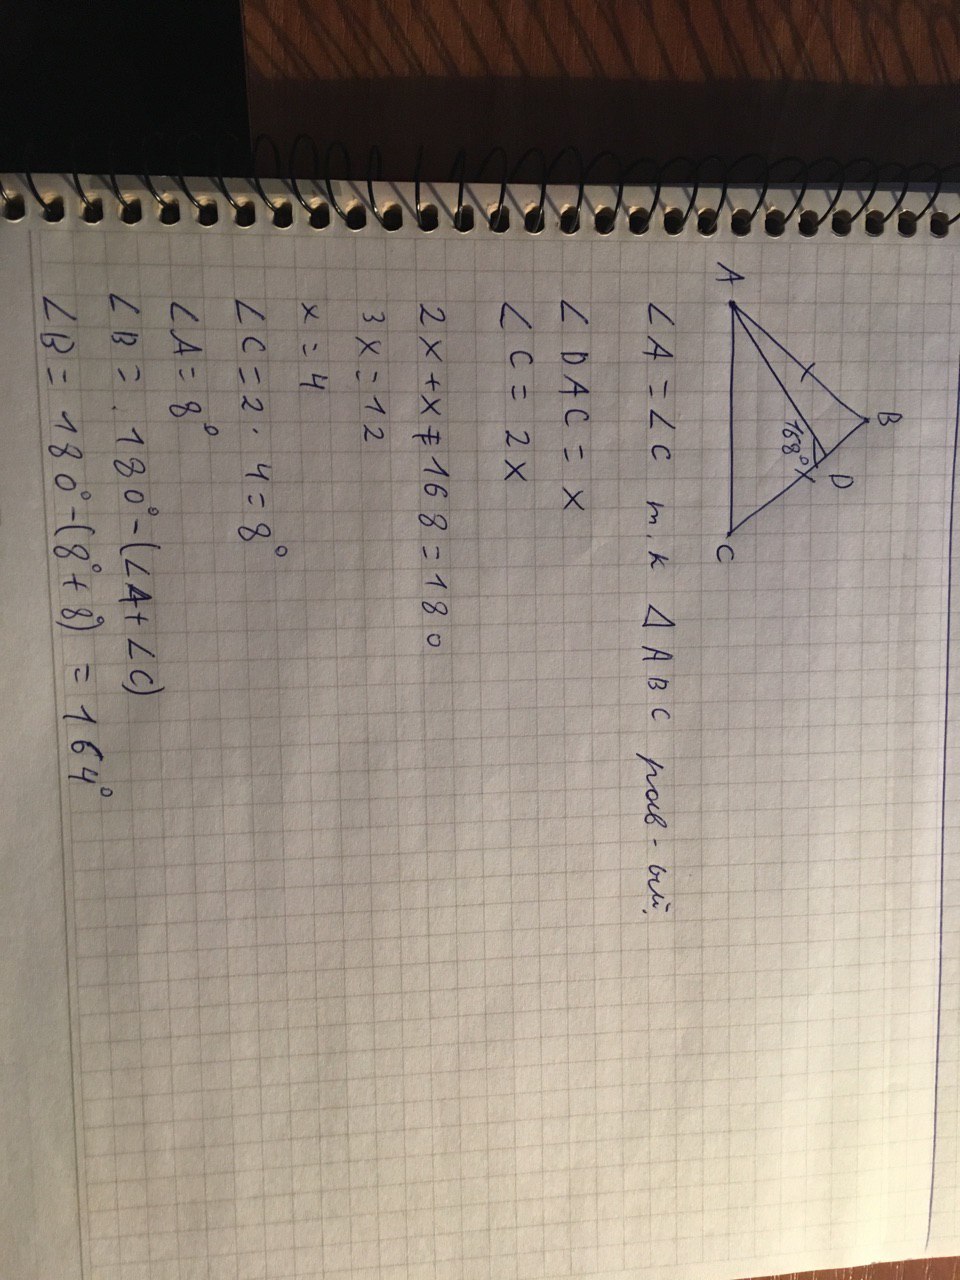 A
B
D
168°
C
∠A = ∠C т.к Δ ABC рав-ый.
∠ DAC = x
∠ C = 2x
2x+x+168=180
3x=12
x=4
∠C=2·4=8°
∠A=8°
∠B=.180°-(∠A+∠C)
∠B=180°-(8°+8°)=164°